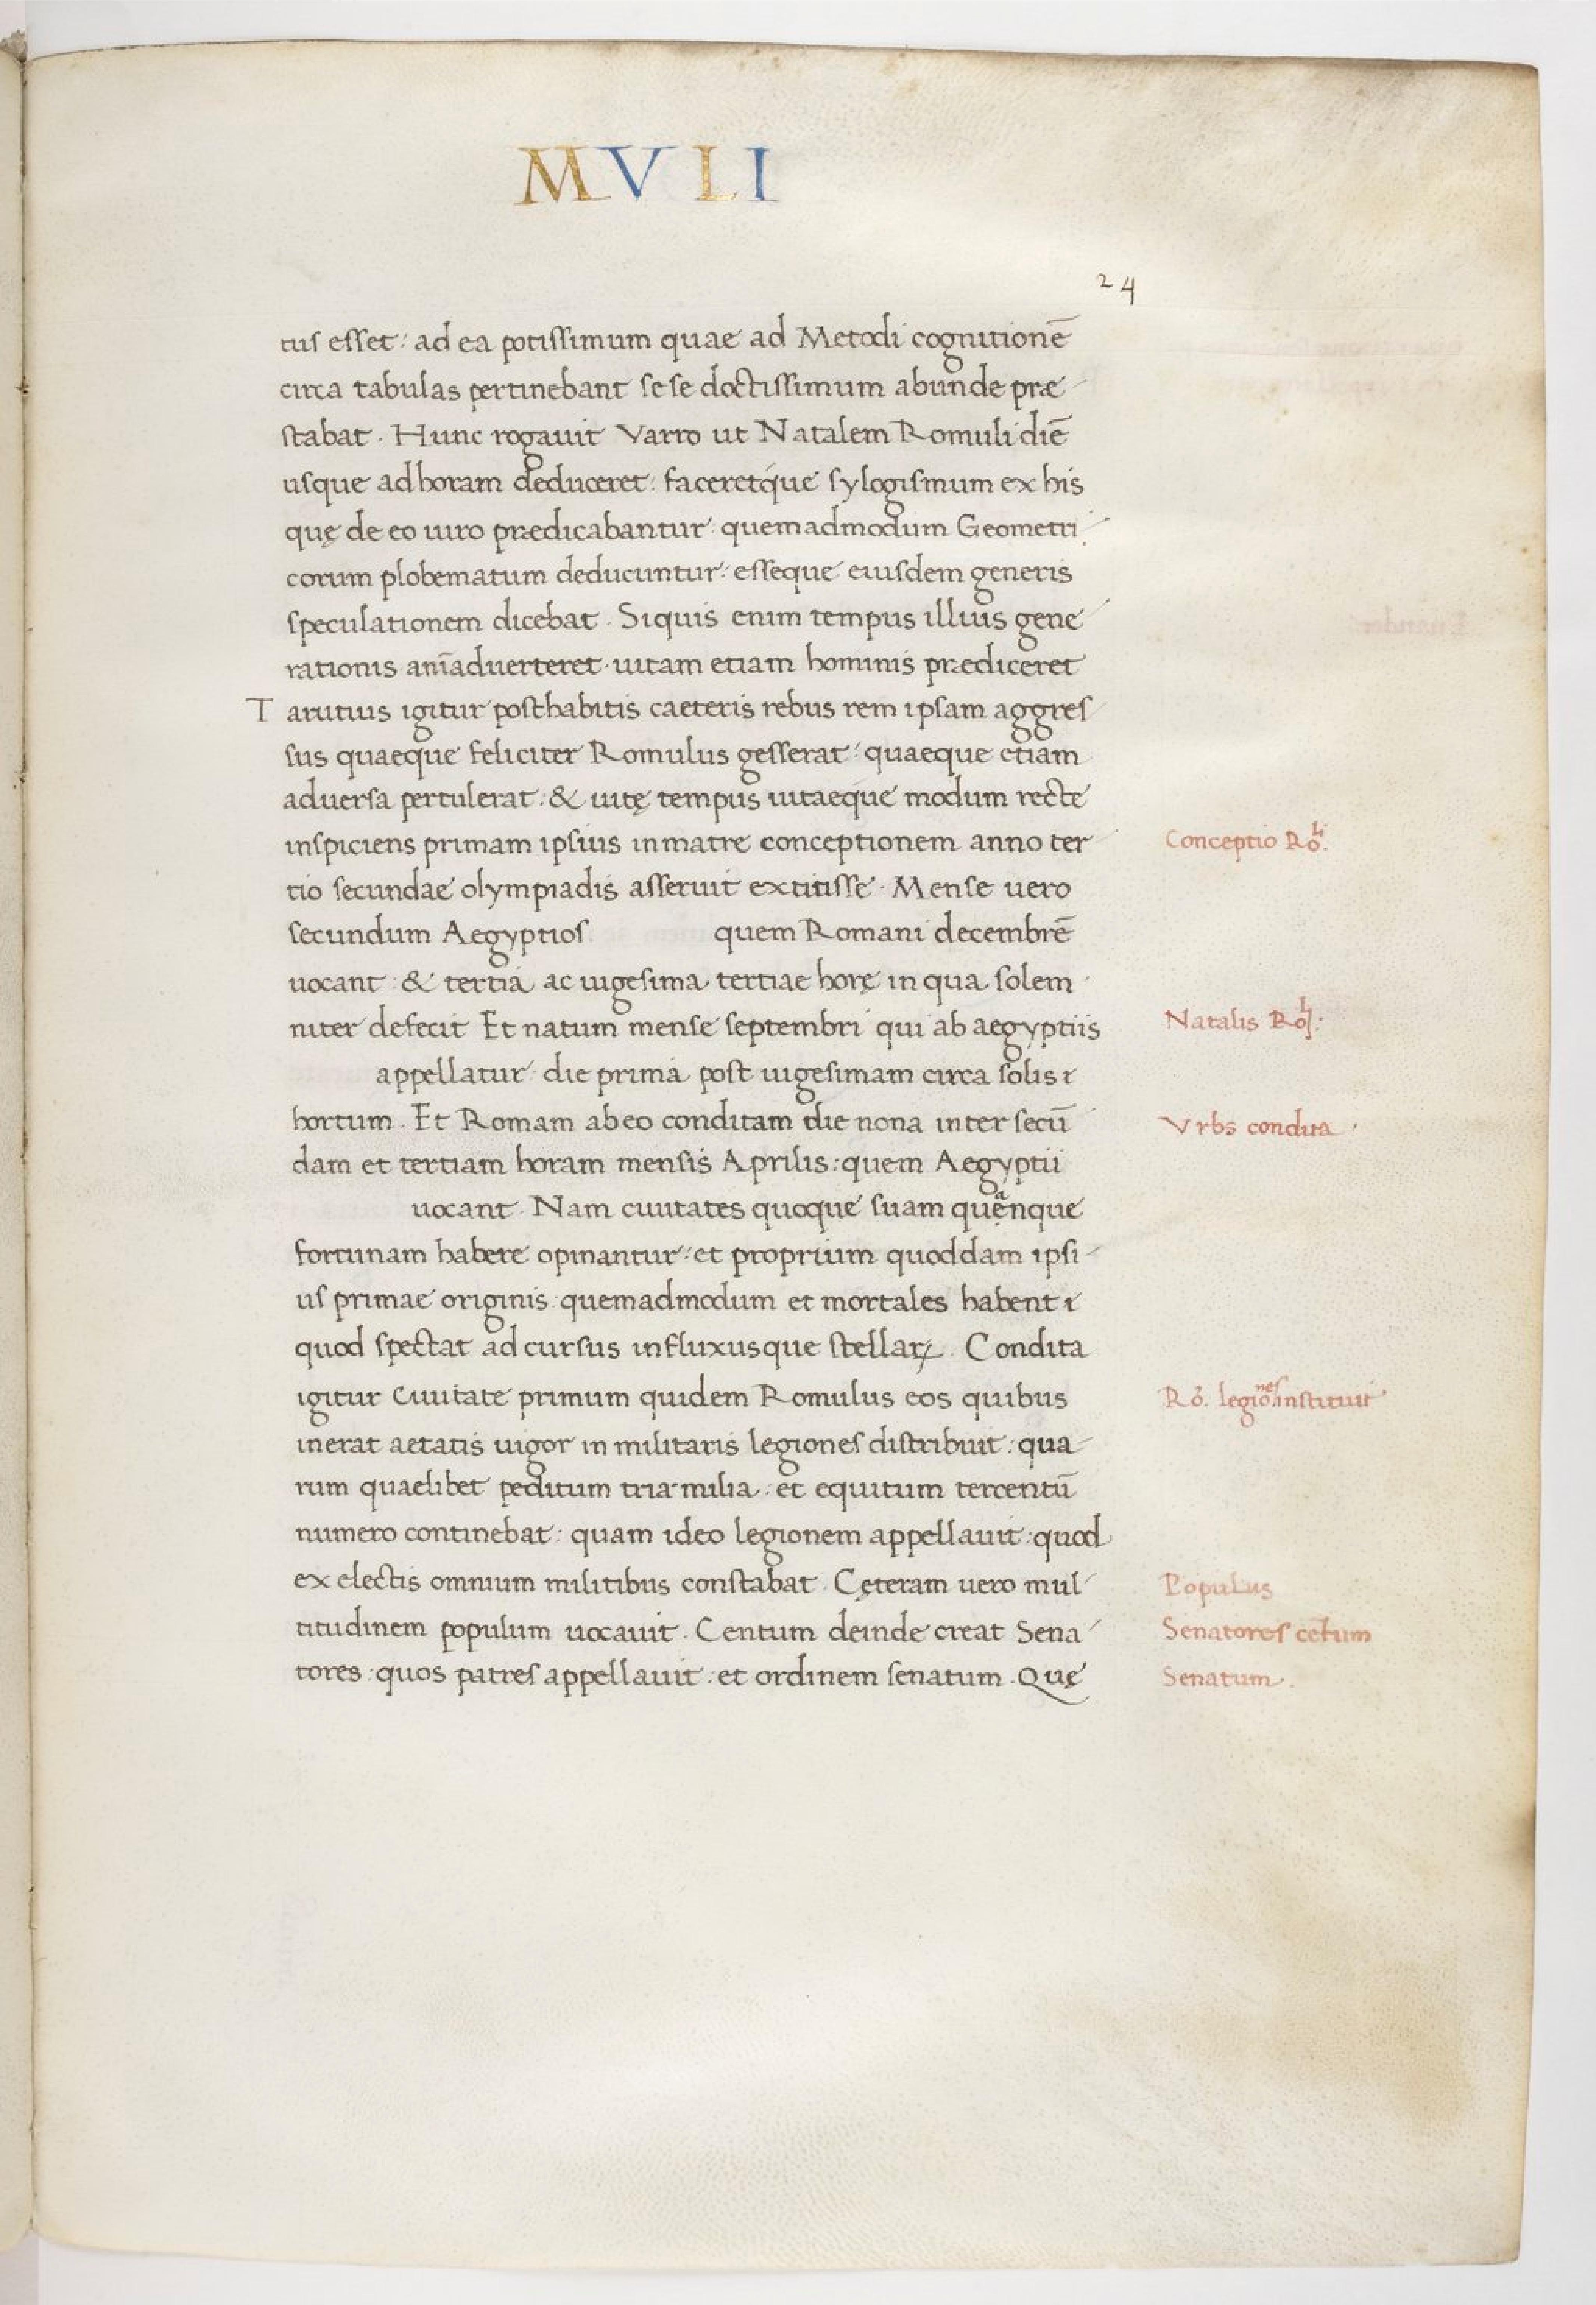 MVLI
24
tus esset: ad ea potissimum quae ad Metodi cognitionē
circa tabulas pertinebant sese doctissimum abunde præ
stabat. Hunc rogauit Varro ut Natalem Romuli diē
usque ad horam deduceret: faceretque sylogismum ex his
quę de eo uiro prædicabantur: quemadmodum Geometri
corum plobematum deducuntur: esseque eiusdem generis
speculationem dicebat. Siquis enim tempus illius gene
rationis anīaduerteret uitam etiam hominis prædiceret
Tarutius igitur posthabitis caeteris rebus rem ipsam aggres
sus quaeque feliciter Romulus gesserat: quaeque etiam
aduersa pertulerat: & uitę tempus uitaeque modum recte
inspiciens primam ipsius in matre conceptionem anno ter
Conceptio Ro.li
tio secundae olympiadis asseruit extitisse. Mense uero
secundum Aegyptios quem Romani decembrē
uocant: & tertia ac uigesima tertiae horę in qua solem
niter defecit Et natum mense septembri qui ab aegyptiis
Natalis Roli:
appellatur: die prima post uigesimam circa solis
hortum. Et Romam ab eo conditam die nona inter secū
Vrbs condita
dam et tertiam horam mensis Aprilis: quem Aegyptii
uocant. Nam ciuitates quoque suam quęanque
fortunam habere opinantur: et proprium quoddam ipsi
us primae originis quemadmodum et mortales habent
quod spectat ad cursus influxusque stellaꝝ. Condita
igitur Ciuitate primum quidem Romulus eos quibus
Ro. legiones instituit
inerat aetatis uigor in militaris legiones distribuit: qua
rum quaelibet peditum tria milia: et equitum tercentū
numero continebat: quam ideo legionem appellauit: quod
ex electis omnium militibus constabat. Cęteram uero mul
Populus
titudinem populum uocauit. Centum deinde creat Sena
Senatores cētum
tores: quos patres appellauit: et ordinem senatum. Quę
Senatum.